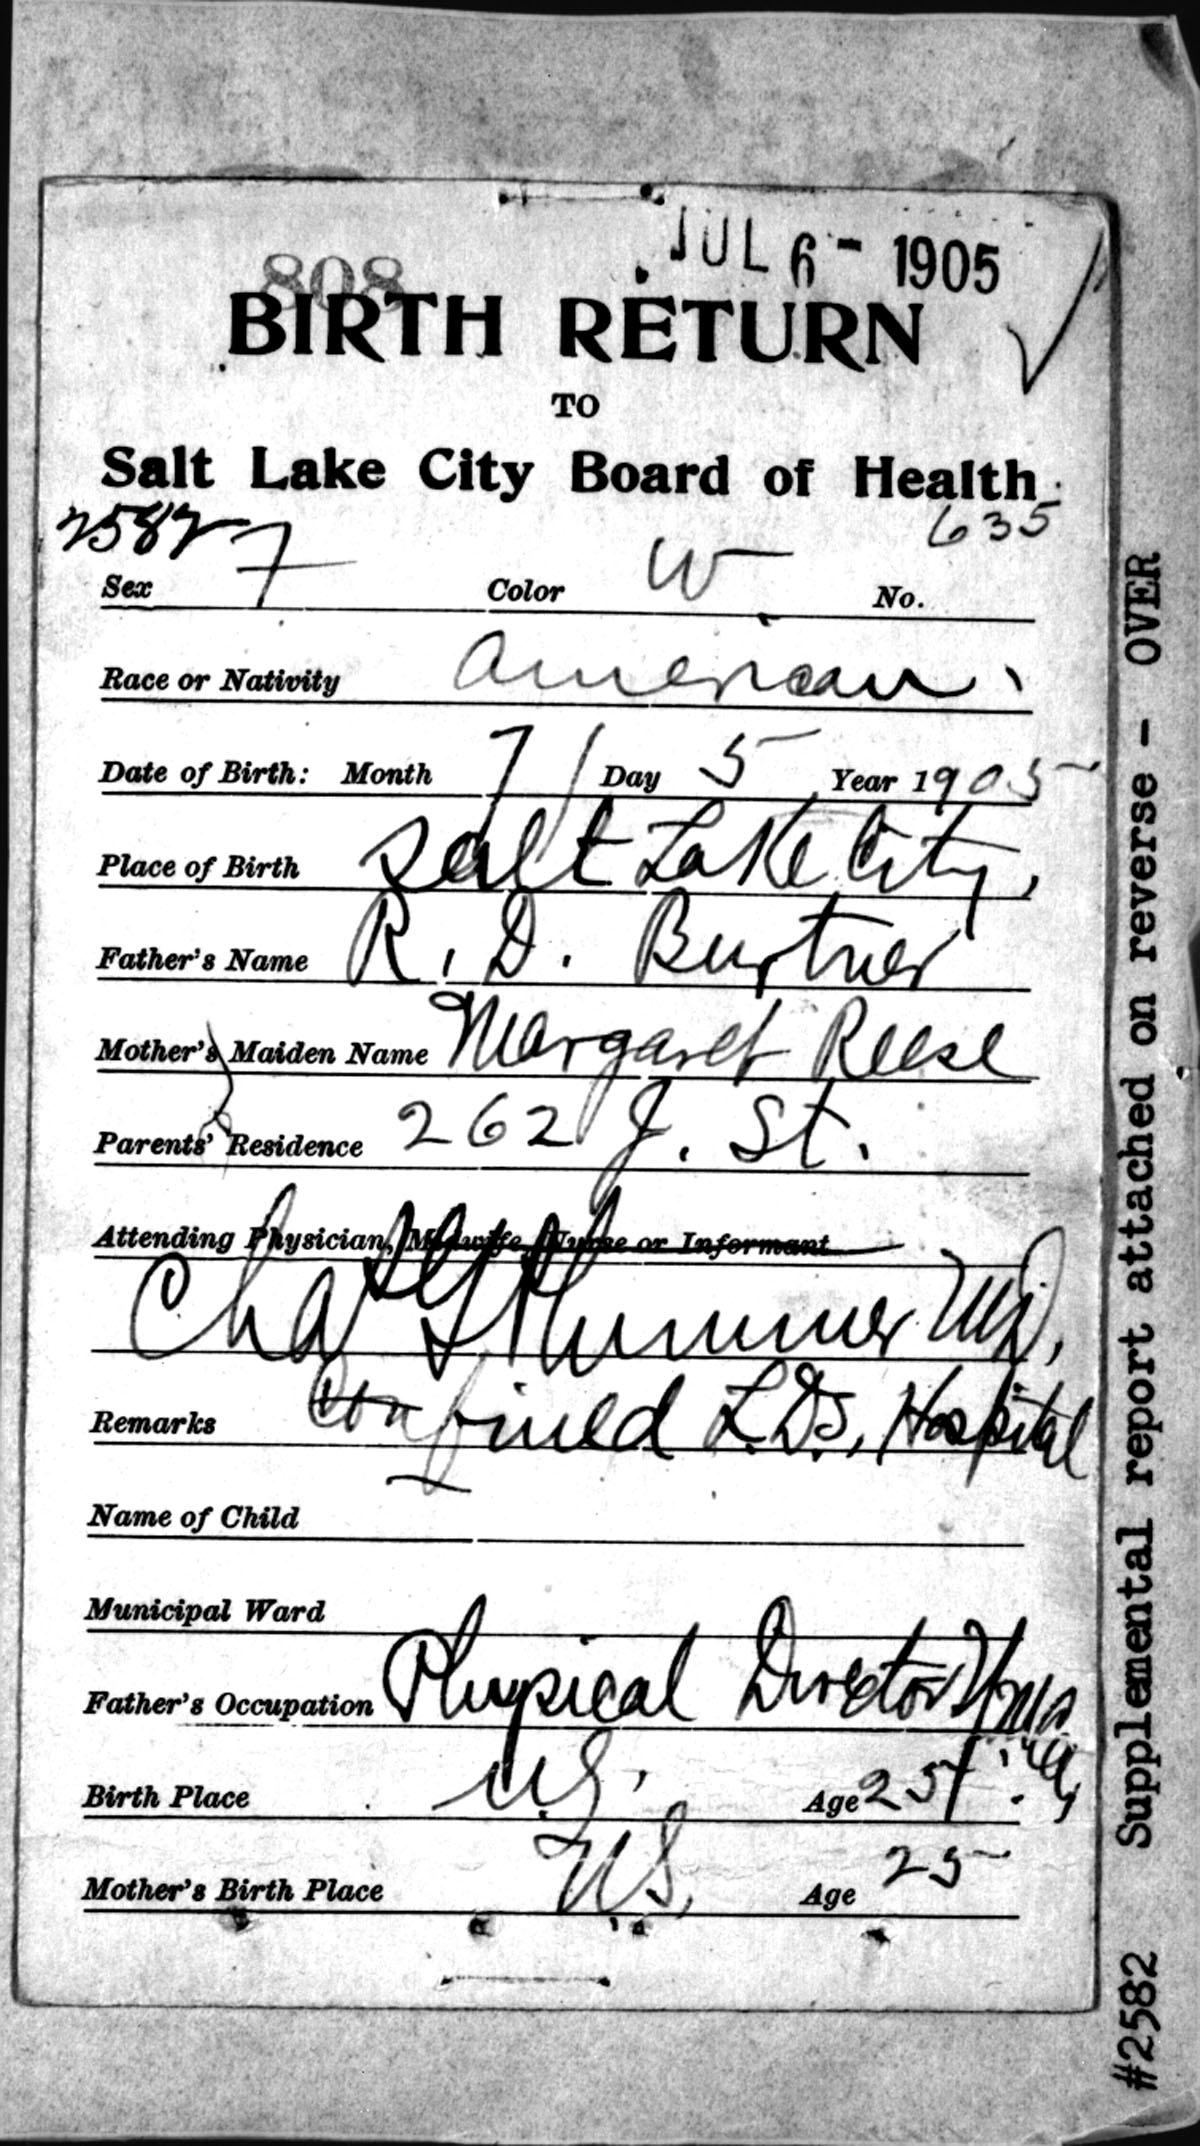 JUL 6 - 1905
808
BIRTH RETURN
TO
Salt Lake City Board of Health
2582 635
Sex F Color W No.
Race or Nativity American
Date of Birth: Month 7 / Day 5 Year 1905
Place of Birth Salt Lake City,
Father's Name R. D. Burtner
Mother's Maiden Name Margaret Reese
Parents' Residence 262 J. St.
Attending Physician, Midwife, Nurse or Informant
Chas G Plummer MD.
Remarks Confined L.D.S. Hospital
Name of Child
Municipal Ward
Father's Occupation Physical Director
Birth Place U.S. Age 25
Mother's Birth Place U.S. Age 25
#2582 Supplemental report attached on reverse - OVER